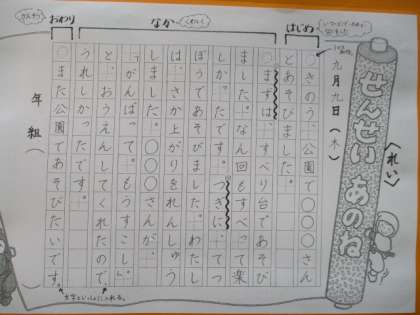 〈れい〉
せんせいあのね
九月九日(木)
はじめ
なか
くわしく
おわり
かんそう
○きのう、公園で○○○さん
とあそびました。
○まずは、すべり台であそび
ました。なん回もすべって楽
しかったです。つぎに、てつ
ぼうであそびました。わたし
は、さか上がりをれんしゅう
しました。○○○さんが、
「がんばって。もうすこし。」
と、おうえんしてくれたので、
うれしかったです。
○また公園であそびたいです。
年 組( )
文字といっしょに入れる。